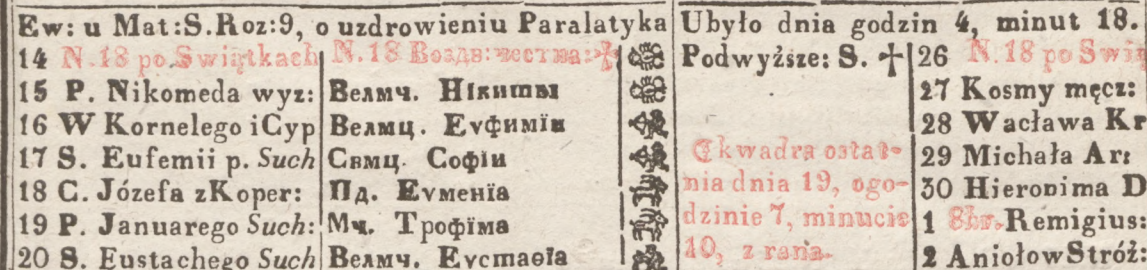 Ew: u Mat: S. Roz: 9, o uzdrowieniu Paralatyka Ubyło dnia godzin 4, minut 18.
14 N. 18 po Swiątkach N. 18 Воздв: честна: ☩ Podwyższe: S. ☩ 26 N. 18 po Swią
15 P. Nikomeda wyz: Велмч. Нікиты 27 Kosmy męcz:
16 W Kornelego i Cyp Велмц. Еѵфиміи 28 Wacława Kr
17 S. Eufemii p. Such Свмц. Софіи Ckwadra ostat- 29 Michała Ar:
18 C. Józefa z Koper: Пд. Еѵменїа nia dnia 19, ogo- 30 Hieronima D
19 P. Januarego Such: Мч. Трофїма dzinie 7, minucie 1 8br. Remigius:
20 S. Eustachego Such Велмч. Еѵстаѳїа 10, z rana. 2 Aniołow Stróż: